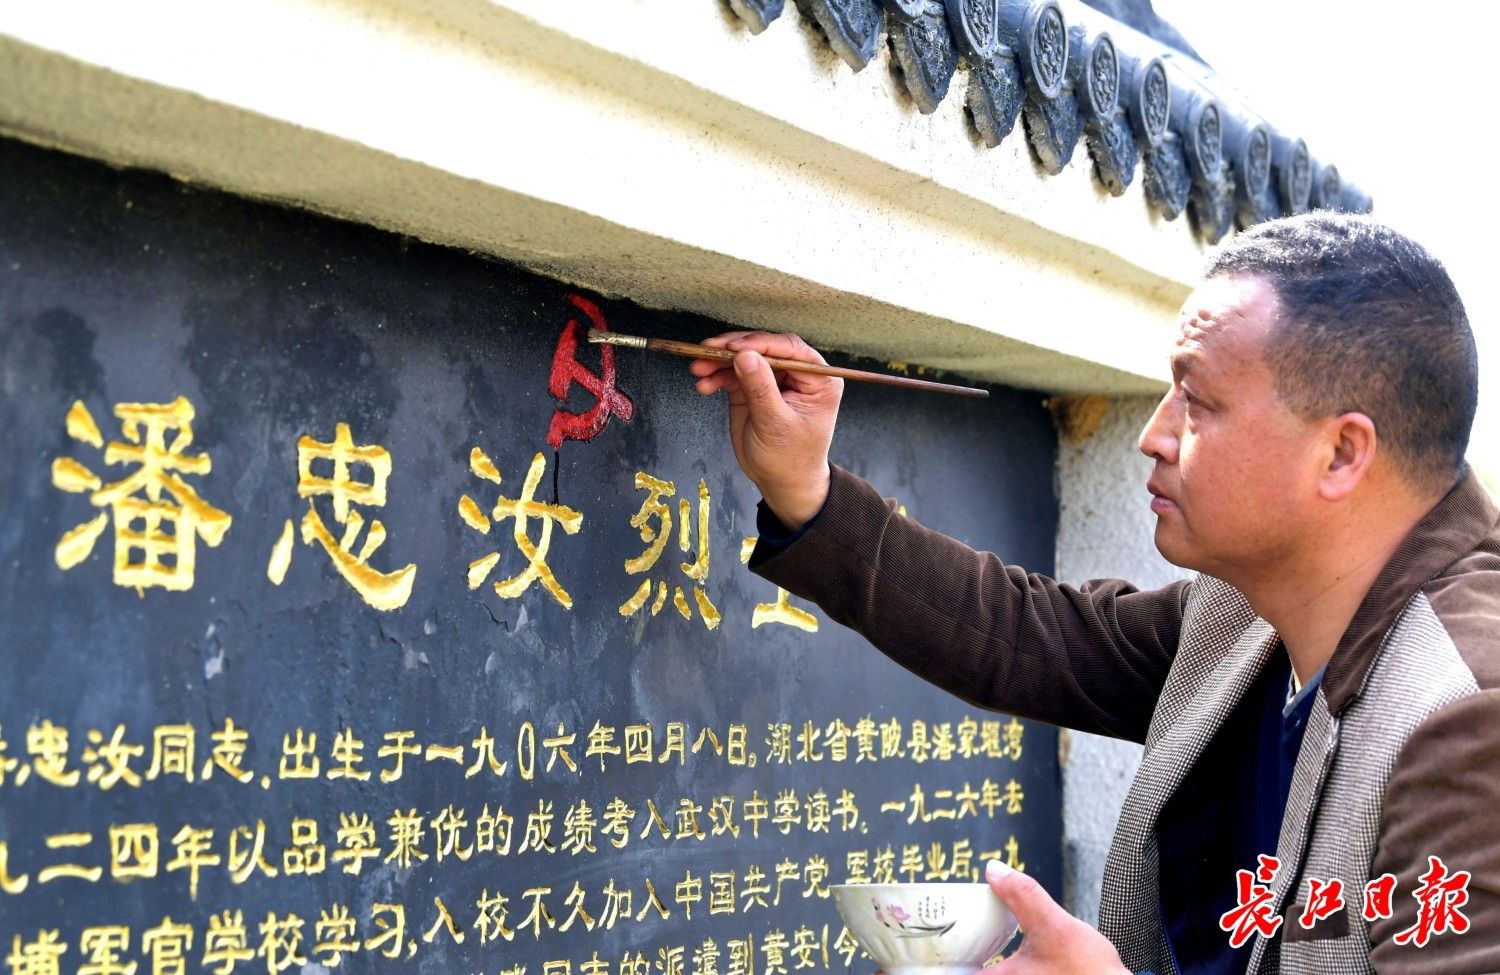 潘忠汝烈士
忠汝同志,出生于一九0六年四月八日。湖北省黄陂县潘家堰湾
九二四年以品学兼优的成绩考入武汉中学读书。一九二六年去
埔军官学校学习,入校不久加入中国共产党,军校毕业后,一九
同志的派遣到黄安(今
长江日报